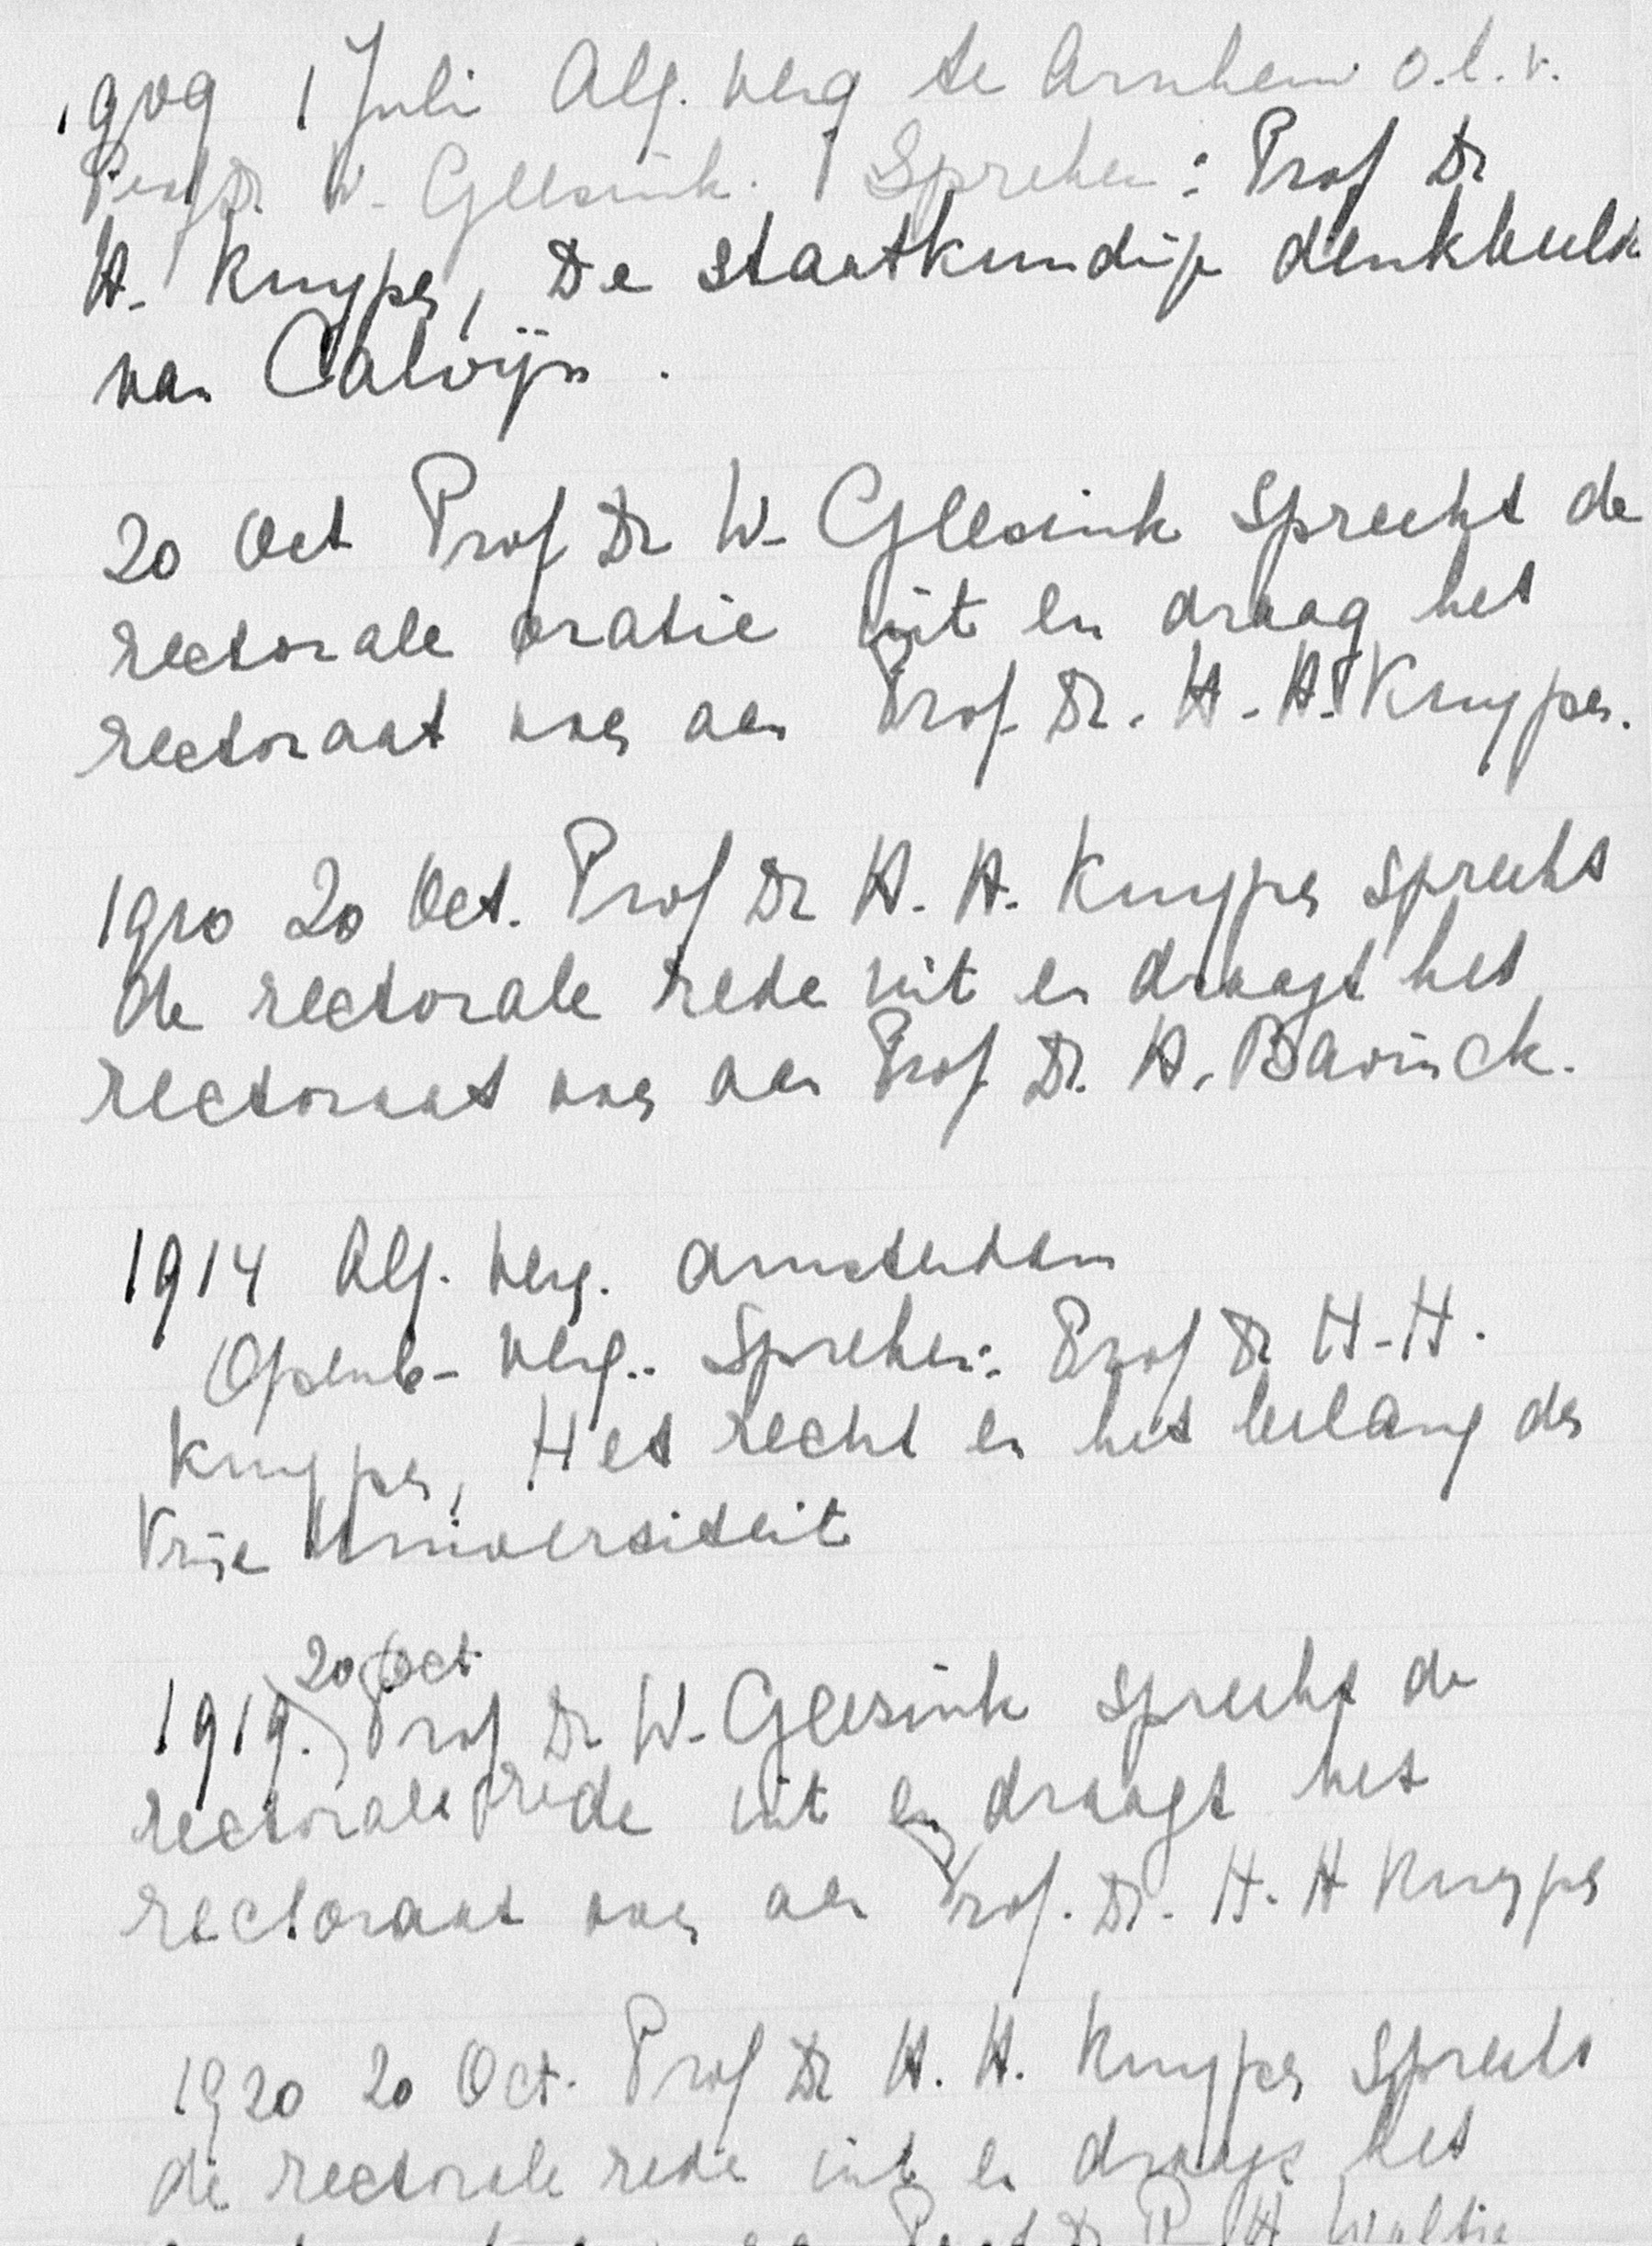 1909 1 Juli Alg. verg te Arnhem o.l.v.
Prof Dr. W. Geesink. Spreker: Prof Dr
H. Kuyper, De staatkundige denkbeelde
van Calvijn.
20 Oct Prof Dr W. Geesink spreekt de
rectorale oratie uit en draag het
rectoraat over aan Prof. Dr. H. H. Kuyper.
1910 20 Oct. Prof Dr H. H. Kuyper spreekt
de rectorale rede uit en draagt het
rectoraat over aan Prof. Dr. H. Bavinck.
1914 Alg. Verg. Amsterdam
Openb. verg. Spreker: Prof Dr H. H.
Kuyper, Het recht en het belang der
Vrije Universiteit
20 Oct
1919. Prof Dr W. Geesink spreekt de
rectorale rede uit en draagt het
rectoraat over aan Prof. Dr. H. H Kuyper
1920 20 Oct. Prof Dr H. H. Kuyper spreekt
de rectorale rede uit en draagt het
Prof Dr